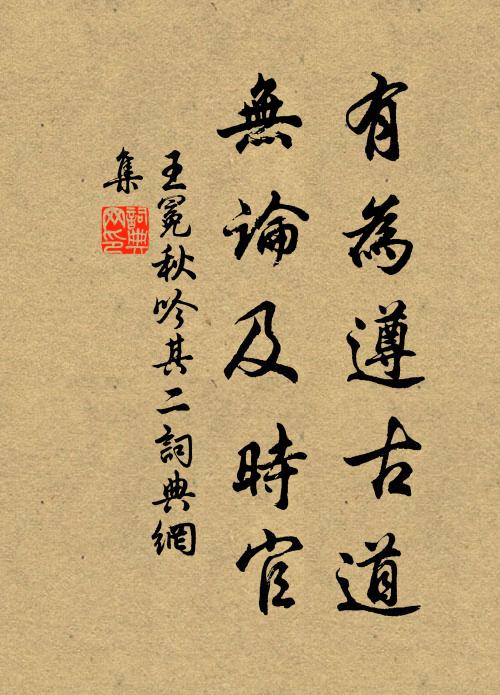 有為遵古道
無論及時官
王冕秋吟其二詞典網
集
詞典網印